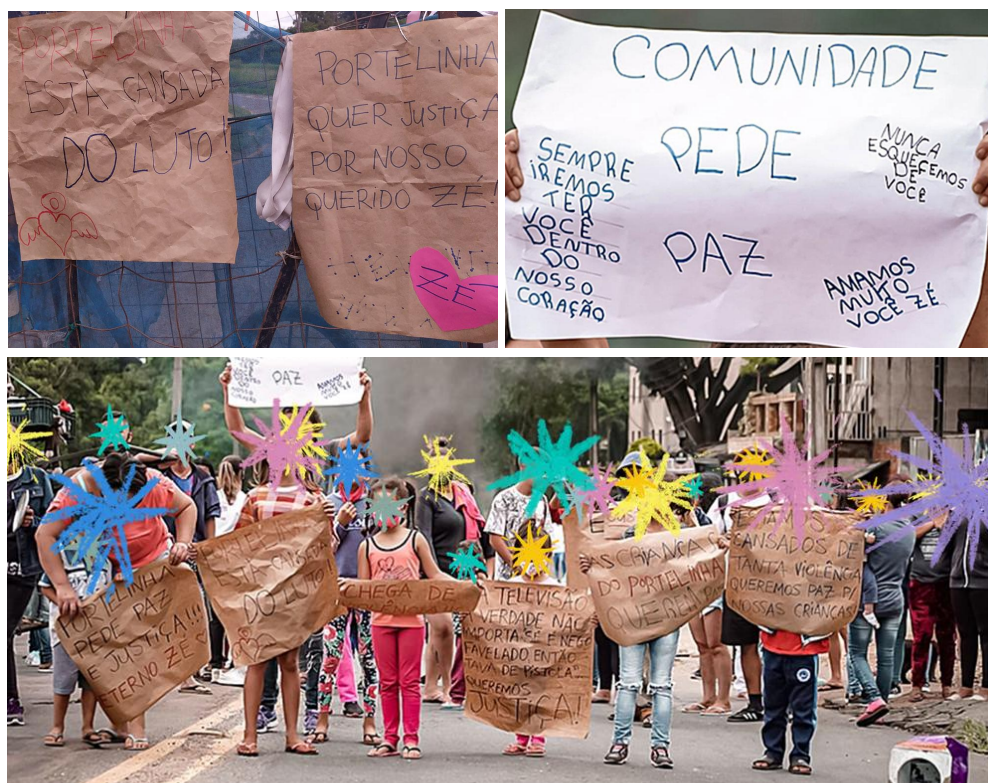 PORTELINHA
ESTÁ CANSADA
DO LUTO!
PORTELINHA
QUER JUSTIÇA
POR NOSSO
QUERIDO ZÉ!
ZÉ
COMUNIDADE
PEDE
PAZ
SEMPRE
IREMOS
TER
VOCÊ
DENTRO
DO
NOSSO
CORAÇÃO
NUNCA
ESQUECEMOS
DE
VOCÊ
AMAMOS
MUITO
VOCÊ ZÉ
PAZ
DO
NOSSO
CORAÇÃO
AMAMOS
MUITO
VOCÊ ZÉ
PORTELINHA
PEDE PAZ
E JUSTIÇA!!!
ETERNO ZÉ
PORTELINHA
ESTÁ CANSADA
DO LUTO!
CHEGA DE
TELEVISÃO
VERDADE NÃO
IMPORTA SE É NEGO
FAVELADO ENTÃO
"TAVA DE PISTOLA"
QUEREMOS
JUSTIÇA!
AS CRIANÇAS
DO PORTELINHA
QUEREM
ESTAMOS
CANSADOS DE
TANTA VIOLÊNCIA
QUEREMOS PAZ P/
NOSSAS CRIANÇAS